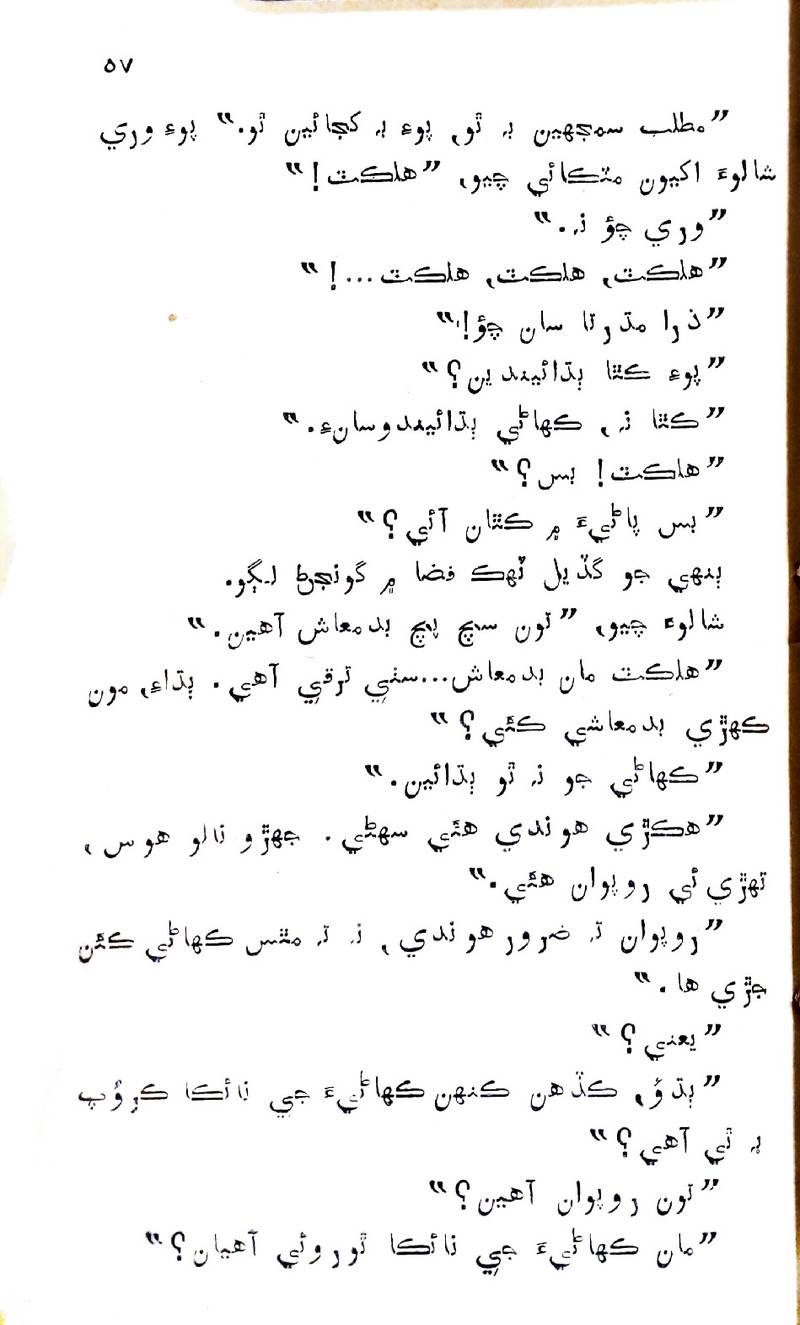 ٥٧
”مطلب سمجهين بہ ٿو، پوءِ بہ کجائين ٿو.“ پوءِ وري
شالوءَ اکيون مٽڪائي چيو، ”هلڪٽ!“
”وري چؤ نہ.“
”هلڪٽ، هلڪٽ، هلڪٽ...!“
”ذرا مڌرتا سان چؤ!“
”پوءِ ڪٿا ٻڌائيندين؟“
”ڪٿا نہ، ڪهاڻي ٻڌائيندوسانءِ.“
”هلڪٽ! بس؟“
”بس پاڻيءَ ۾ ڪٿان آئي؟“
ٻنهي جو گڏيل ٽهڪ فضا ۾ گونجڻ لڳو.
شالوءَ چيو، ”تون سچ پچ بدمعاش آهين.“
”هلڪٽ مان بدمعاش...سٺي ترقي آهي. ٻڌاءِ، مون
ڪهڙي بدمعاشي ڪئي؟“
”ڪهاڻي جو نہ ٿو ٻڌائين.“
”هڪڙي هوندي هئي سهڻي. جهڙو نالو هوس،
تهڙي ئي روپوان هئي.“
”روپوان تہ ضرور هوندي، نہ تہ مٿس ڪهاڻي ڪئن
جڙي ها.“
”يعني؟“
”ٻڌؤ، ڪڏهن ڪنهن ڪهاڻيءَ جي نائڪا ڪروُپ
بہ ٿي آهي؟“
”تون روپوان آهين؟“
”مان ڪهاڻيءَ جي نائڪا ٿوروئي آهيان؟“